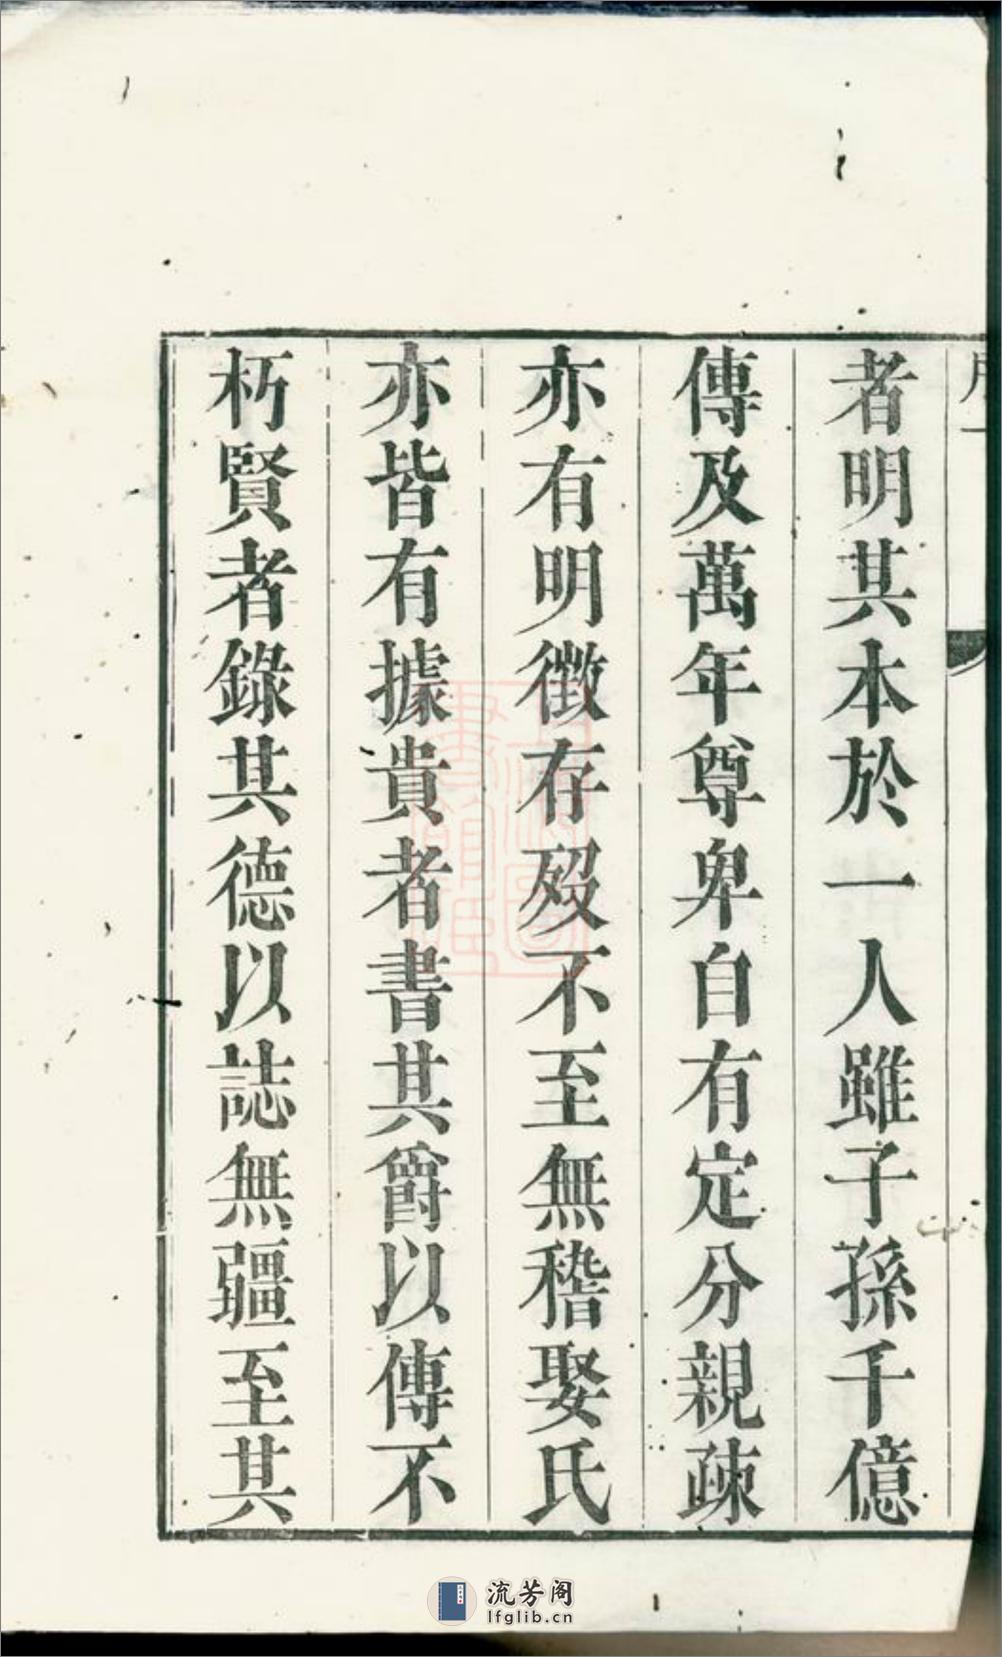 者明其本於一人雖子孫千億
傳及萬年尊卑自有定分親疎
亦有明徵存歿不至無稽娶氏
亦皆有據貴者書其爵以傳不
朽賢者錄其德以誌無疆至其
流芳阁
lfglib.cn